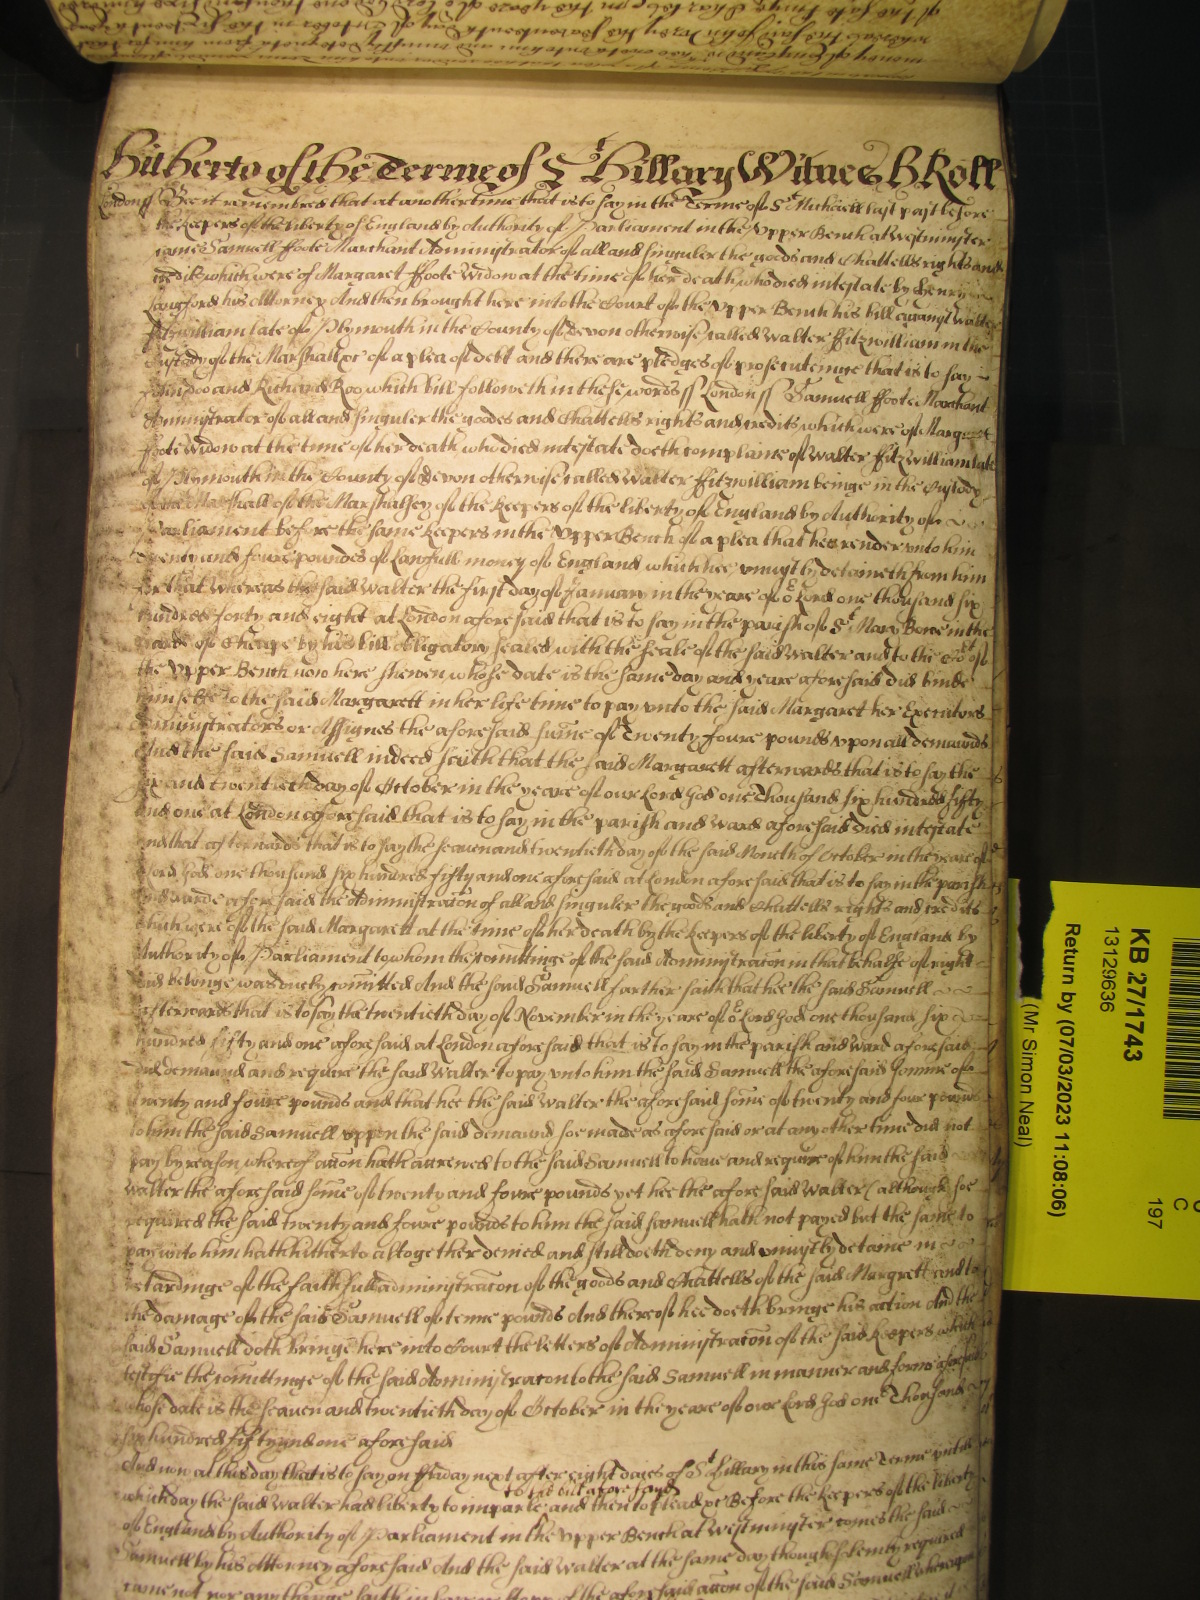 Hitherto of the Terme of St Hillary Witnes H Roll
London ss Bee it remembred that at another time that is to say in the Terme of St Michaell last past before
the Keepers of the liberty of England by Authority of Parliament in the Upper Bench at Westminster
came Samuell ffoote Marchant Administrator of all and singuler the goods and Chattells rights and
credits which were of Margaret ffoote Widow at the time of her death who died intestate by Henry
Langford his Attorney And then brought here into the Court of the Upper Bench his bill against Walter
ffitzwilliam late of Plymouth in the County of Devon otherwise called Walter ffitzwilliam in the
Custody of the Marshall &c of a plea of debt and there are pledges of prosecutinge that is to say
John Doo and Richard Roo which bill followeth in these words ss London ss Samuell ffoote Marchant
Administrator of all and singuler the goodes and Chattells rights and credits which were of Margaret
ffoote Widow at the time of her death who died intestate doeth complaine of Walter ffitzwilliam late
of Plymouth in the County of Devon otherwise called Walter ffitzwilliam beinge in the Custody
of the Marshall of the Marshalsey of the Keepers of the liberty of England by Authority of
Parliament before the same Keepers in the Upper Bench of a plea that hee render unto him
Twenty and foure poundes of Lawfull money of England which hee uniustly detaineth from him
for that Whereas the said Walter the first day of January in the yeare of or Lord one thousand six
hundred forty and eight at London aforesaid that is to say in the parish of St Mary Bowe in the
ward of Cheape by his bill obligatory sealed with the seale of the said Walter and to the Cort of
the Upper Bench now here shewen whose date is the same day and yeare aforesaid did binde
himselfe to the said Margarett in her life time to pay unto the said Margaret her Executors
Administrators or Assignes the aforesaid summe of Twenty foure pounds upon all demaunds
And the said Samuell indeed saith that the said Margarett afterwards that is to say the
six and twentieth day of October in the yeare of our Lord God one Thousand six hundred fifty
and one at London aforesaid that is to say in the parish and Ward aforesaid died intestate
And that afterwards that is to say the seaven and twentieth day of the said Month of October in the yeare of
Lord God one thousand six hundred fifty and one aforesaid at London aforesaid that is to say in the parish
and warde aforesaid the Administracon of all and singuler the goods and Chattells rights and credits
which were of the said Margarett at the time of her death by the Keepers of the liberty of England by
Authority of Parliament to whom the comittinge of the said Administracon in that behalfe of right
did belonge was duely comitted And the said Samuell further saith that hee the said Samuell
afterwards that is to say the twentieth day of November in the yeare of or Lord God one thousand six
hundred fifty and one aforesaid at London aforesaid that is to say in the parish and ward aforesaid
did demaund and require the said Walter to pay unto him the said Samuell the aforesaid somme of
twenty and foure pounds and that hee the said Walter the aforesaid some of twenty and foure pounds
to him the said Samuell uppon the said demaund soe made as aforesaid or at any other time did not
pay by reason whereof accon hath accrewed to the said Samuell to have and require of him the said
Walter the aforesaid some of twenty and foure pounds yet hee the aforesaid Walter (although soe
required the said twenty and foure pounds to him the said Samuell hath not payed but the same to
pay unto him hath hitherto altogether denied and still doeth deny and uniustly detaine in
retardinge of the faithfull administracon of the goods and Chattells of the said Margrett and to
the damage of the said Samuell of tenne pounds And thereof hee doeth bringe his action And the
said Samuell doth bringe here into Court the letters of Administracon of the said Keepers which
testifie the comittinge of the said Administracon to the said Samuell in manner and forme aforesaid
whose date is the seaven and twentieth day of October in the yeare of our Lord God one Thousand
six hundred fifty and one aforesaid
And now at this day that is to say on ffriday next after eight daies of St Hillary in this same Terme untill
to the bill aforesayd
which day the said Walter had liberty to imparle and then to plead &c Before the Keepers of the liberty
of England by Authority of Parliament in the Upper Bench at Westminster comes the said
Samuell by his Attorney aforesaid And the said Walter at the same day though solemly required
came not nor any thinge saith in of the aforesaid accon of the said Samuell whereupon
KB 27/1743
13129636
Return by (07/03/2023 11:08:06)
(Mr Simon Neal)
C
197